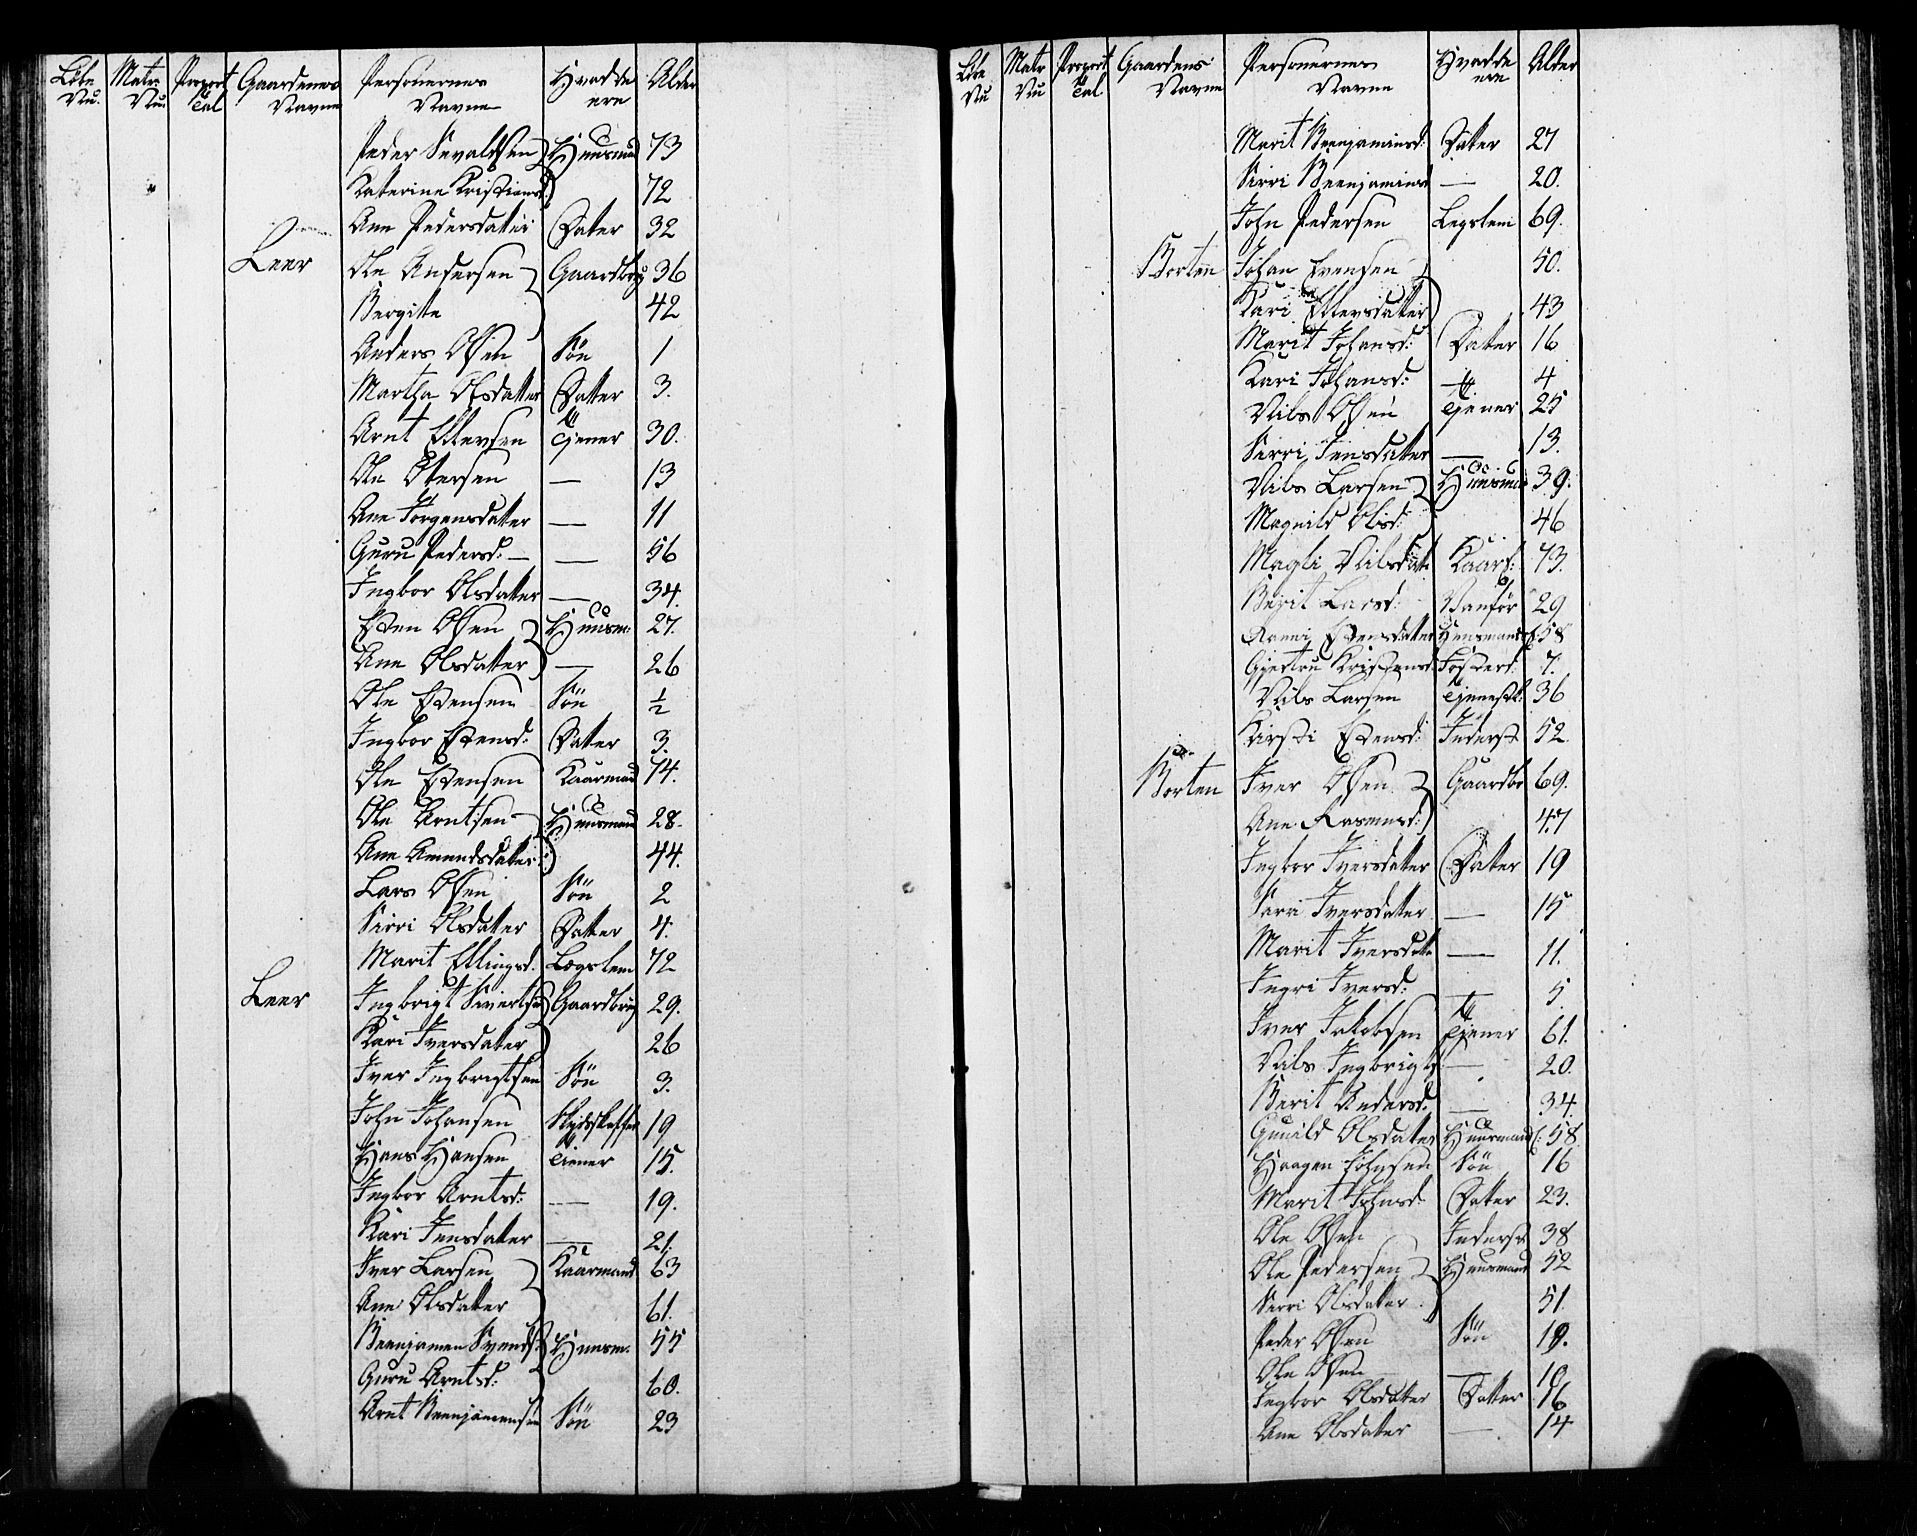 Löbe Nu. Matr Nu. Proport Tal Gaardenes Navne Personernes Navne Hvad de ere Alder
Peder Sevaldsen Huusmd 73
Katerine Kristiensd: 72
Ane Pedersdatter Datter 32
Leer Ole Andersen Gaardbrug 36
Bergitte 42
Anders Olsen Sön 1
Martha Olsdatter Datter 3.
Arnt Ellevsen Tjener 30.
Ole Petersen — 13
Ane Jorgensdatter — 11
Guru Pedersd: — 56
Ingbor Olsdatter — 34.
Esten Olsen Huusm: 27.
Ane Olsdatter — 26
Ole Estensen Sön ½
Ingbor Estensd: Datter 3.
Ole Estensen Kaarmand 74.
Ole Arntsen Huusmand 28.
Ane Amundsdatter 44.
Lars Olsen Sön 2
Sirri Olsdatter Datter 4.
Marit Ellingsd. Legslem 72
Leer Ingbrigt Sivertsen Gaardbrug 29.
Kari Iversdatter 26
Iver Ingbrigtsen Sön 3.
John Johansen 19
Hans Hansen Tiener 15.
Ingbor Arntsd: — 19.
Kari Jensdatter — 21.
Iver Larsen Kaarmand 63
Ane Olsdatter 61.
Beenjamen Svends. Huusm. 55
Guru Arntsd: 60.
Arnt Beenjamensen Sön 23
Löbe Nu Matr Nu Proport Tal Gaardens Navne Personernes Navne Hvad de ere Alder
Marit Beenjaminsd: Datter 27
Sirri Beenjaminsd — 20.
John Pedersen Legslem 69.
Borten Johan Evensen 50.
Kari Ellevsdatter 43
Marit Johansd: Datter 16
Kari Johansd: — 4
Nils Olsen Tjener 25
Sirri Jensdatter — 13.
Nils Larsen Huusmd 39.
Magnild Olsd: 46
Magli Nilsdatt Kaarf: 73.
Berit Larsd: Vanför 29
Ranni Estensdatter Huusmands 58
Gjertru Kristensd: Fosterd: 7.
Nils Larsen Tjenestk: 36
Kirsti Estensd: Inderst 52.
Borten Iver Olsen Gaardbr 69.
Ane Rasmusd: 47
Ingbor Iversdatter Datter 19
Sirri Iversdatter — 15
Marit Iversdatt — 11.
Ingri Iversd: — 5
Iver Jakobsen Tjener 61.
Nils Ingbrigts — 20.
Berit Andersd. — 34.
Gunild Olsdatter Huusmand 58.
Haagen Johnsen Sön 16
Marit Johnsd. Datter 23.
Ole Olsen Inderst 38
Ole Pedersen Huusmand 52
Sirri Olsdatter 51.
Peder Olsen Sön 19.
Ole Olsen — 10
Ingbor Olsdatter Datter 16
Ane Olsdatter — 14